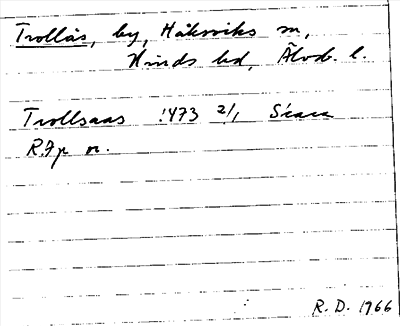 Trollås, by, Håksviks sn,
Kinds hd, Älvsb. l.
Trollsaas 1473 2/1 Skara
RAp or.
R. D. 1966